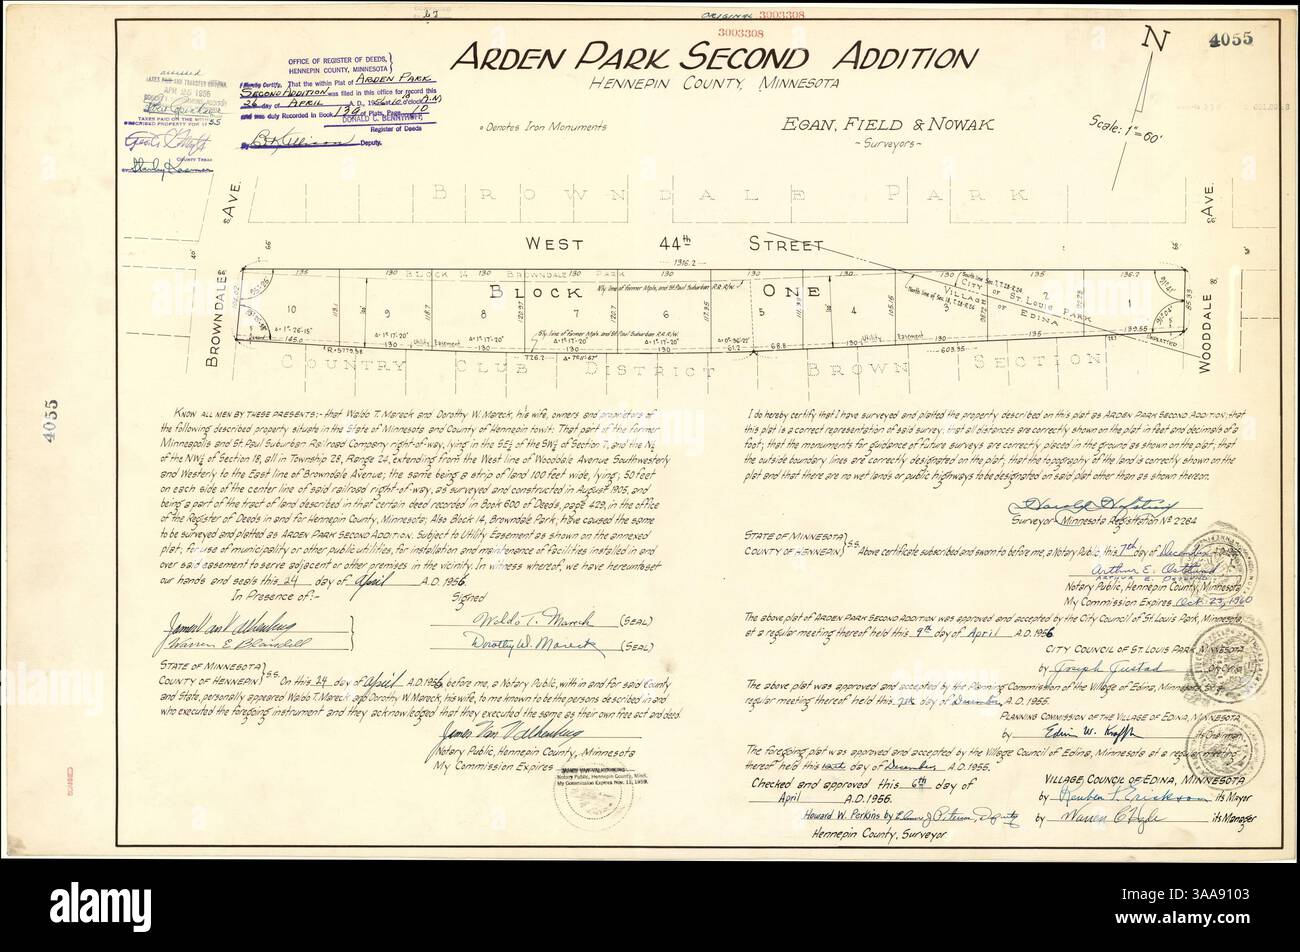 ORIGINAL 3003308
3003308
4055
ARDEN PARK SECOND ADDITION
HENNEPIN COUNTY, MINNESOTA
N
Scale: 1"=60'
OFFICE OF REGISTER OF DEEDS,
HENNEPIN COUNTY, MINNESOTA
I Hereby Certify, That the within Plat of ARDEN PARK
SECOND ADDITION was filed in this office for record this
26 day of APRIL A.D., 195
and was duly Recorded in Book 139 of Plats, Page 10
Register of Deeds
Deputy.
assessed
APR 25 1956
TAXES PAID ON THE WITHIN
COUNTY TREAS
Denotes Iron Monuments
EGAN, FIELD & NOWAK
~ Surveyors ~
BROWNDALE PARK
BROWNDALE AVE.
WOODDALE AVE.
WEST 44th STREET
1316.2
135 130 130 130 130 130 130 135 136.7
BLOCK 14 BROWNDALE PARK
BLOCK ONE
N'ly line of former Mpls. and St. Paul Suburban R.R. R/W
CITY OF ST. LOUIS PARK
VILLAGE OF EDINA
10 9 8 7 6 5 4 3 2 1
S'ly line of former Mpls. and St. Paul Suburban R.R. R/W
Utility Easement
Utility Easement
145.0 130 130 130 130 61.2 68.8 130 130 135 139.55
R=5779.58
726.2
603.35
COUNTRY CLUB DISTRICT BROWN SECTION
4055
KNOW ALL MEN BY THESE PRESENTS:- that Waldo T. Mareck and Dorothy W. Mareck, his wife, owners and proprietors of
the following described property situate in the State of Minnesota and County of Hennepin towit: That part of the former
Minneapolis and St. Paul Suburban Railroad Company right-of-way, lying in the SE¼ of the SW¼ of Section 7, and the N½
of the NW¼ of Section 18, all in Township 28, Range 24, extending from the West line of Wooddale Avenue Southwesterly
and Westerly to the East line of Browndale Avenue; the same being a strip of land 100 feet wide, lying 50 feet
on each side of the center line of said railroad right-of-way, as surveyed and constructed in August 1905, and
being a part of the tract of land described in that certain deed recorded in Book 600 of Deeds, page 429, in the office
of the Register of Deeds in and for Hennepin County, Minnesota; Also Block 14, Browndale Park; have caused the same
to be surveyed and platted as ARDEN PARK SECOND ADDITION. Subject to Utility Easement as shown on the annexed
plat; for use of municipality or other public utilities, for installation and maintenance of facilities installed in and
over said easement to serve adjacent or other premises in the vicinity. In witness whereof, we have hereunto set
our hands and seals this 24 day of April A.D. 1956
In Presence of:- Signed
James Van Valkenburg Waldo T. Mareck (SEAL)
Warren E Blaisdell Dorothy W. Mareck (SEAL)
STATE OF MINNESOTA
COUNTY OF HENNEPIN S.S. On this 24 day of April A.D. 1956, before me, a Notary Public, with in and for said County
and State, personally appeared Waldo T. Mareck and Dorothy W. Mareck, his wife, to me known to be the persons described in and
who executed the foregoing instrument and they acknowledged that they executed the same as their own free act and deed.
James Van Valkenburg
Notary Public, Hennepin County, Minnesota
My Commission Expires
JAMES VAN VALKENBURG
Notary Public, Hennepin County, Minn.
My Commission Expires Nov. 12, 1959.
I do hereby certify that I have surveyed and platted the property described on this plat as ARDEN PARK SECOND ADDITION; that
this plat is a correct representation of said survey; that all distances are correctly shown on the plat in feet and decimals of a
foot; that the monuments for guidance of future surveys are correctly placed in the ground as shown on the plat; that
the outside boundary lines are correctly designated on the plat; that the topography of the land is correctly shown on the
plat and that there are no wet lands or public highways to be designated on said plat other than as shown thereon.
Surveyor- Minnesota Registration No 2284
STATE OF MINNESOTA
COUNTY OF HENNEPIN S.S. Above certificate subscribed and sworn to before me, a Notary Public, this 7th day of December
Arthur E. Ostlund
Notary Public, Hennepin County, Minnesota
My Commission Expires Oct. 23, 1960
The above plat of ARDEN PARK SECOND ADDITION was approved and accepted by the City Council of St. Louis Park, Minnesota,
at a regular meeting thereof held this 9th day of April A.D. 1956
CITY COUNCIL OF ST. LOUIS PARK, MINNESOTA
by Joseph Justad
The above plat was approved and accepted by the Planning Commission of the Village of Edina, Minnesota at a
regular meeting thereof held this 7th day of December, A.D. 1955.
PLANNING COMMISSION OF THE VILLAGE OF EDINA, MINNESOTA
by its Chairman
The foregoing plat was approved and accepted by the Village Council of Edina, Minnesota at a regular meeting
thereof held this day of December A.D. 1955.
VILLAGE COUNCIL OF EDINA, MINNESOTA
by Reuben F. Erickson its Mayor
by Warren C Hyde its Manager
Checked and approved this 6th day of
April A.D. 1956.
Howard W. Perkins by Deputy
Hennepin County, Surveyor
SCANNED
alamy
Image ID: 3AA9103
www.alamy.com